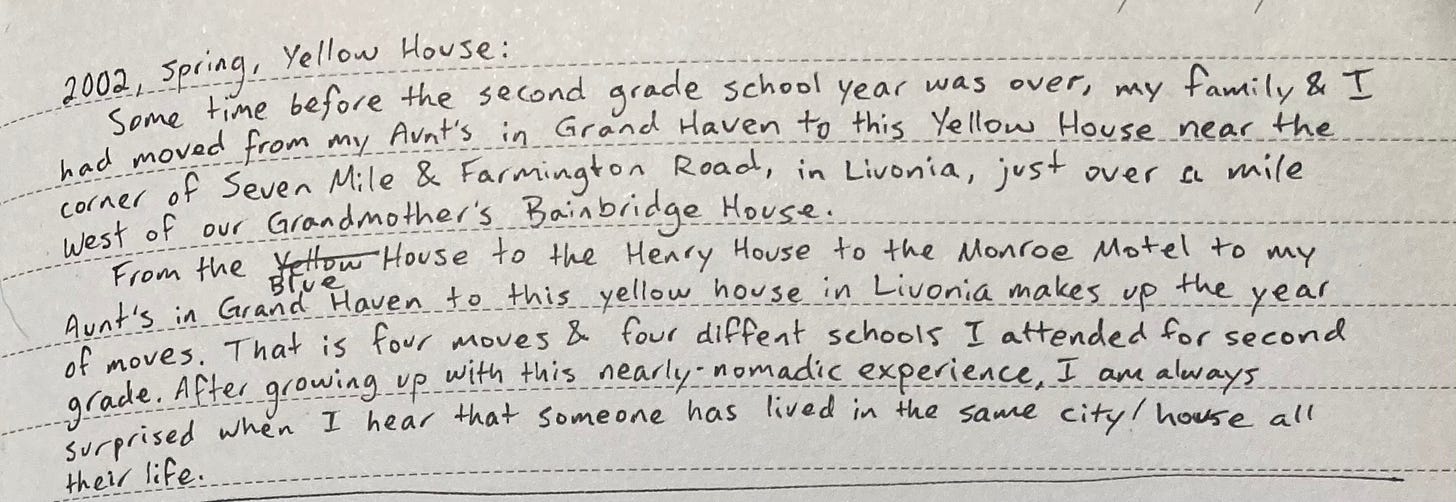 2002, Spring, Yellow House:
Some time before the second grade school year was over, my family & I
had moved from my Aunt's in Grand Haven to this Yellow House near the
corner of Seven Mile & Farmington Road, in Livonia, just over a mile
West of our Grandmother's Bainbridge House.
From the Yellow House to the Henry House to the Monroe Motel to my
Blue
Aunt's in Grand Haven to this yellow house in Livonia makes up the year
of moves. That is four moves & four diffent schools I attended for second
grade. After growing up with this nearly-nomadic experience, I am always
surprised when I hear that someone has lived in the same city/house all
their life.